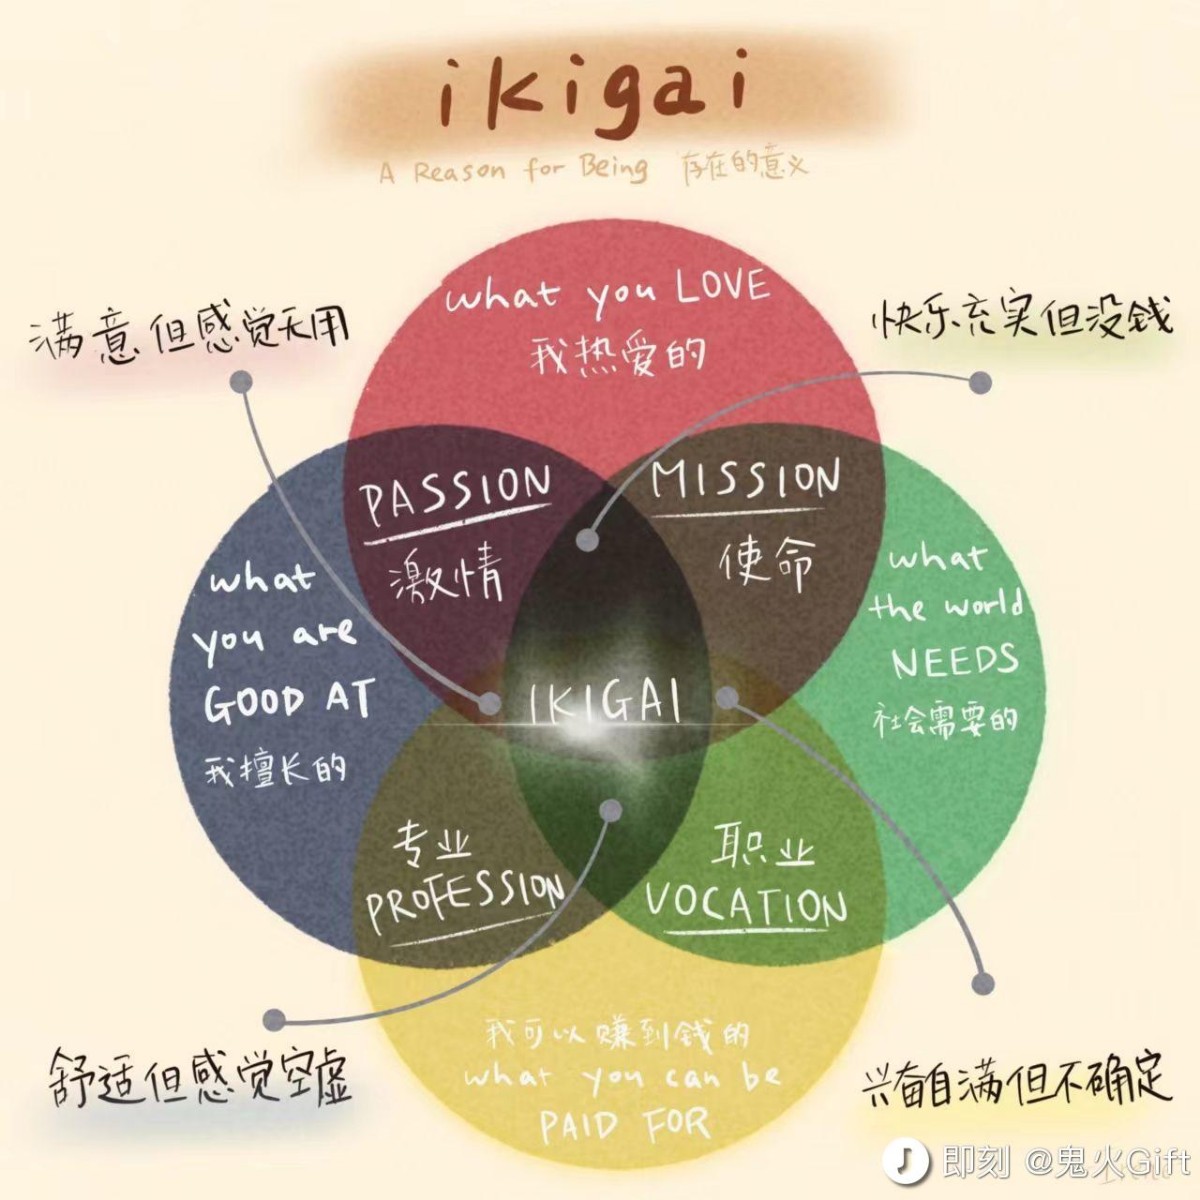 ikigai
A Reason for Being 存在的意义
what you LOVE
我热爱的
满意但感觉无用
快乐充实但没钱
PASSION
激情
MISSION
使命
what
you are
GOOD AT
我擅长的
what
the world
NEEDS
社会需要的
IKIGAI
专业
PROFESSION
职业
VOCATION
我可以赚到钱的
what you can be
PAID FOR
舒适但感觉空虚
兴奋自满但不确定
即刻 @鬼火Gift